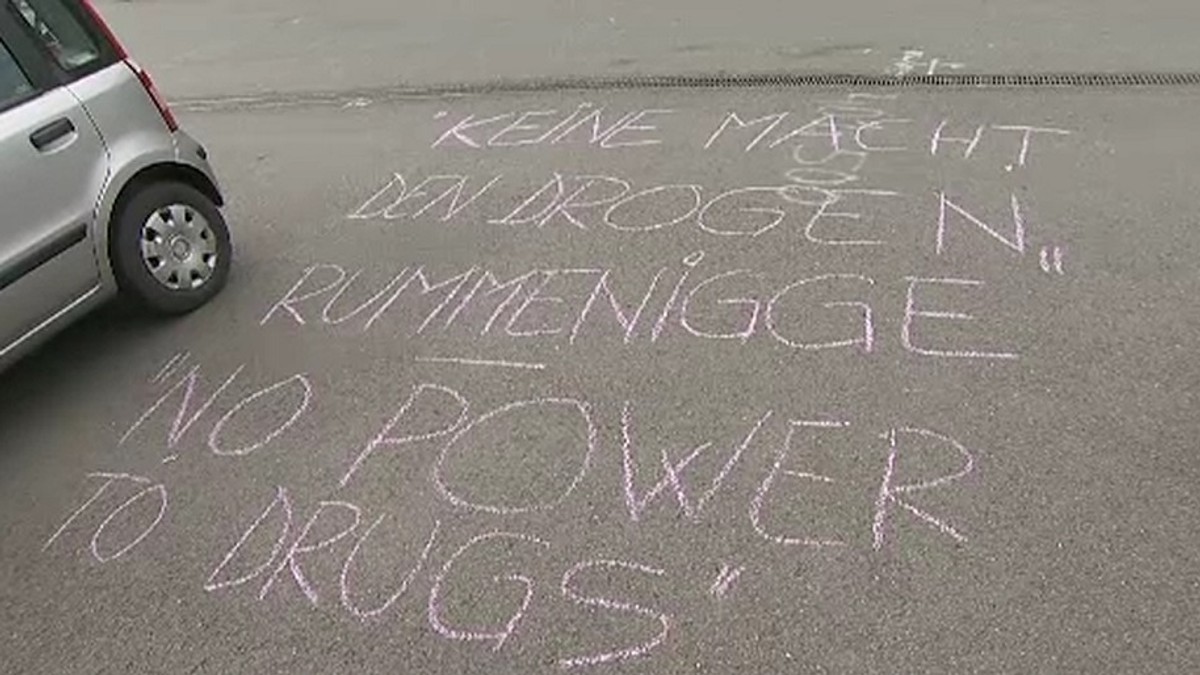 "KEINE MACHT
DEN DROGEN"
RUMMENIGGE
"NO POWER
TO DRUGS"